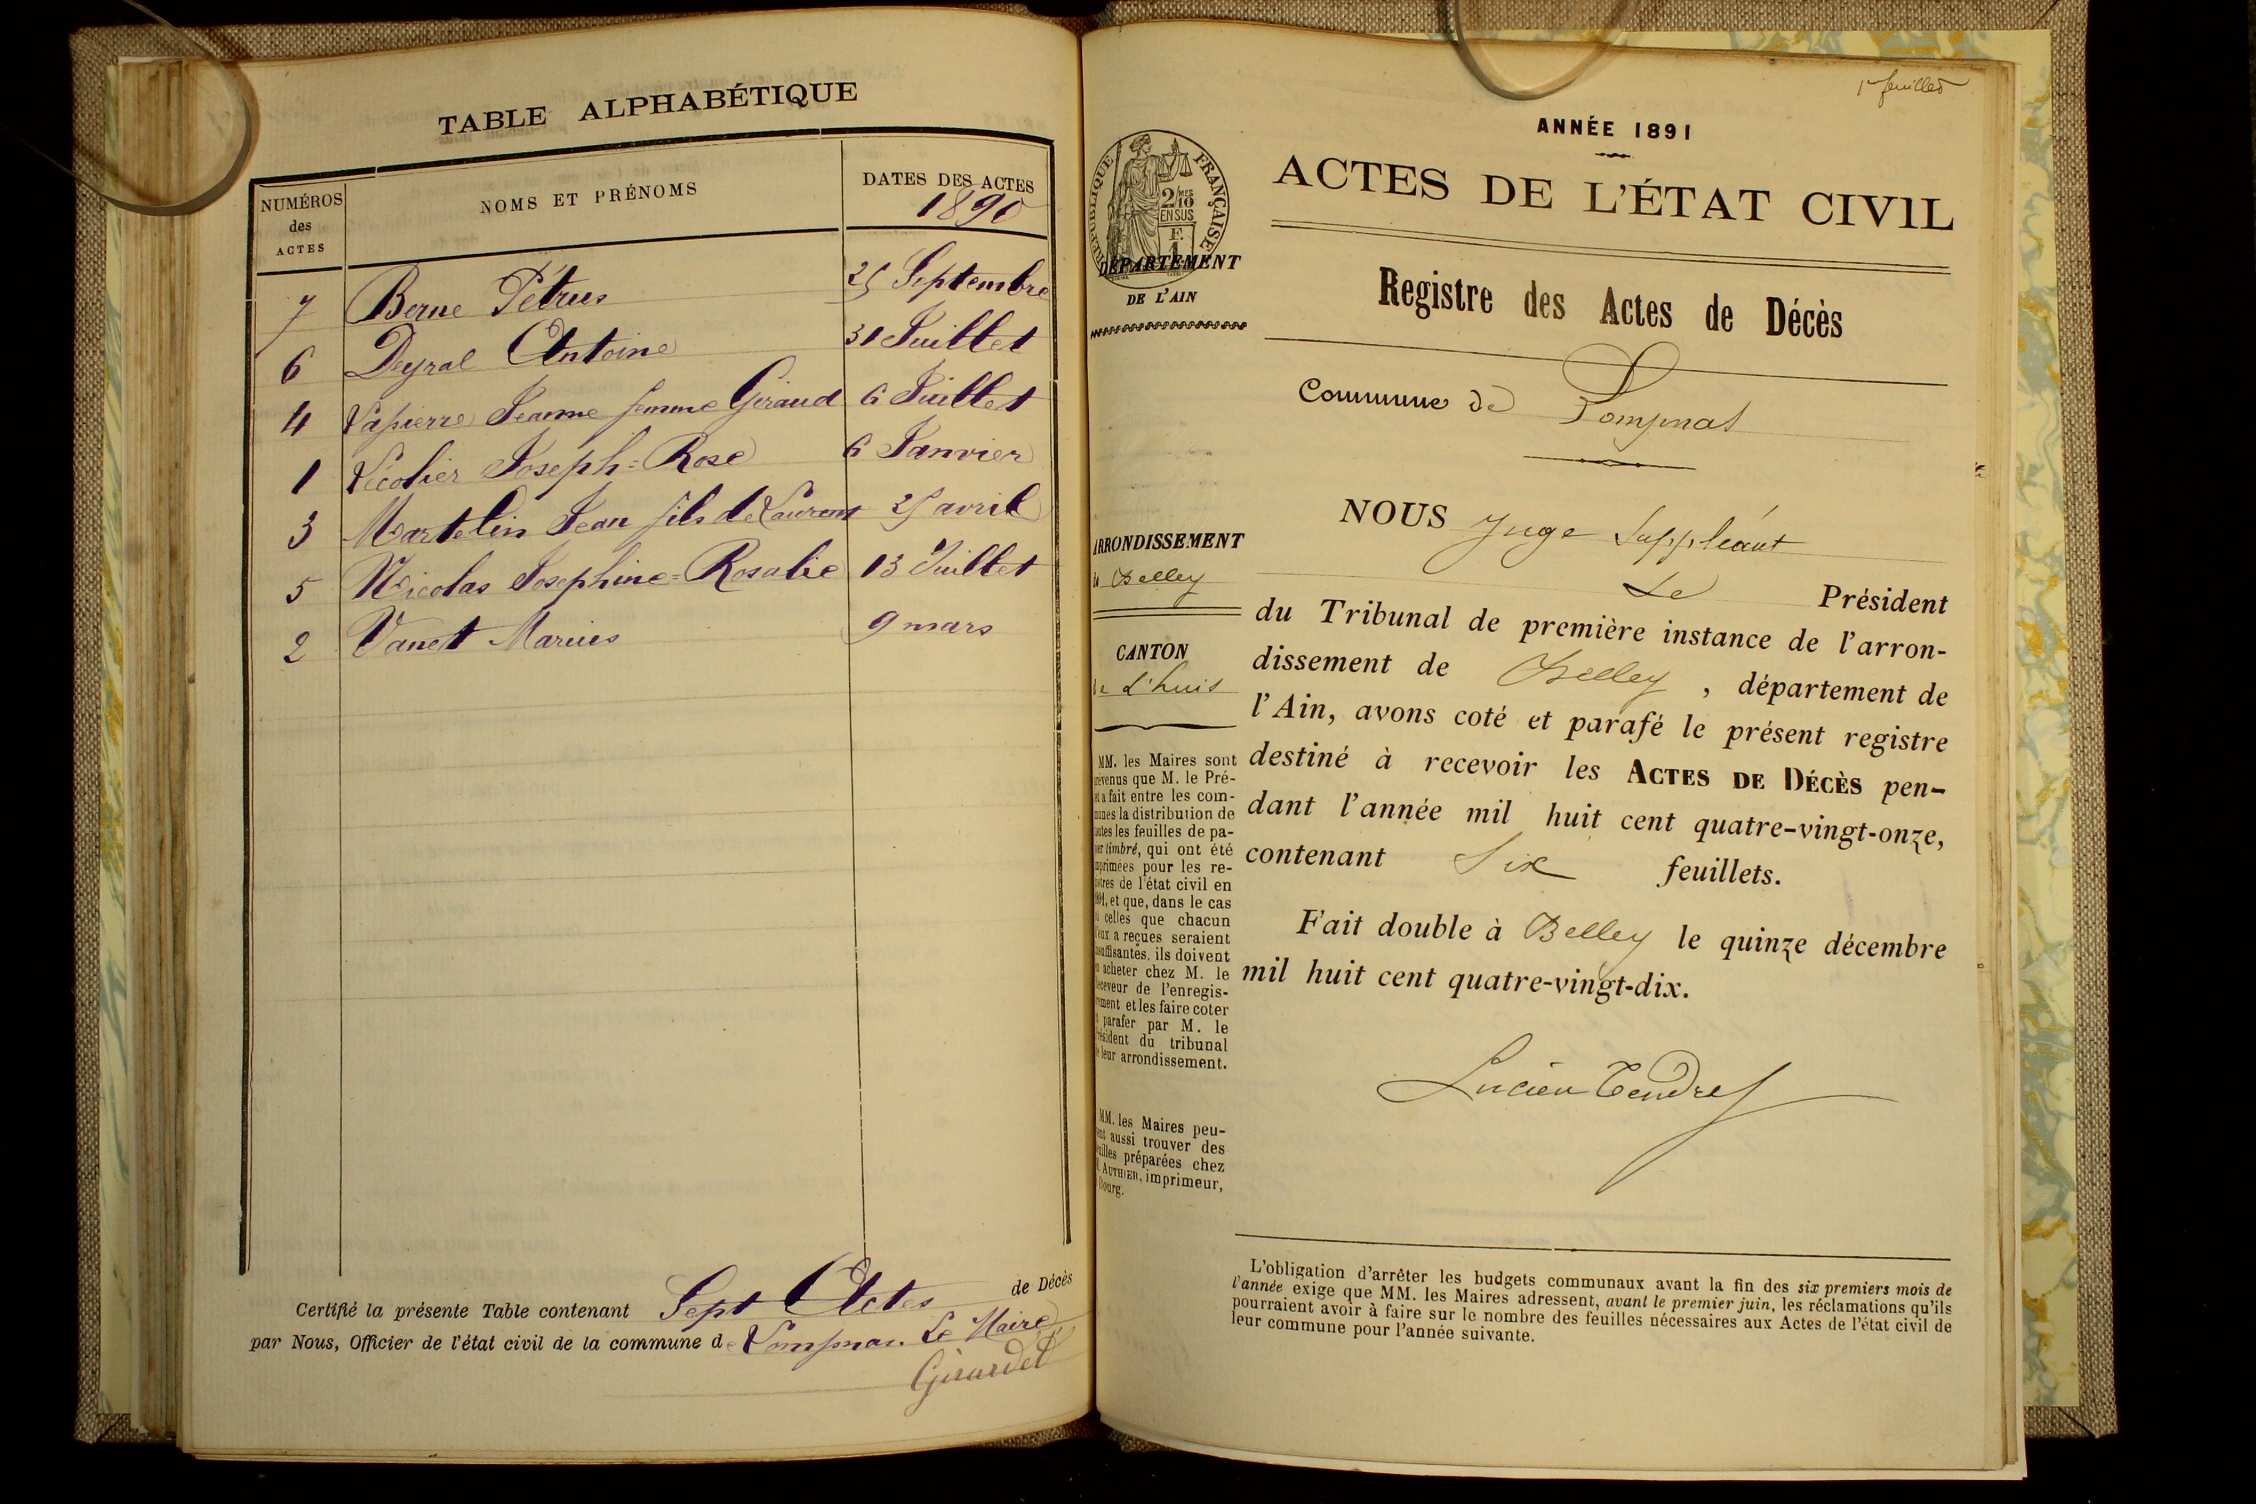 TABLE ALPHABÉTIQUE
NUMÉROS des ACTES NOMS ET PRÉNOMS DATES DES ACTES
1890
7 Berne Pétrus 25 Septembre
6 Deyral Antoine 31 Juillet
4 Lapierre Jeanne femme Giraud 6 Juillet
1 Lécolier Joseph=Rose 6 Janvier
3 Martelin Jean fils de Laurent 25 avril
5 Nicolas Josephine=Rosalie 13 Juillet
2 Vanet Marius 9 mars
Certifié la présente Table contenant Sept Actes de Décès
par Nous, Officier de l'état civil de la commune de Lompnas. Le Maire
Girardet
1er feuillet
ANNÉE 1891
ACTES DE L'ÉTAT CIVIL
RÉPUBLIQUE FRANÇAISE
2/10 MES
EN SUS
F.
1
DÉPARTEMENT
DE L'AIN
Registre des Actes de Décès
Commune de Lompnas
ARRONDISSEMENT
de Belley
CANTON
de L'huis
MM. les Maires sont
prévenus que M. le Pré-
fet a fait entre les com-
munes la distribution de
toutes les feuilles de pa-
pier timbré, qui ont été
imprimées pour les re-
gistres de l'état civil en
1891, et que, dans le cas
où celles que chacun
d'eux a reçues seraient
insuffisantes, ils doivent
en acheter chez M. le
Receveur de l'enregis-
trement et les faire coter
et parafer par M. le
Président du tribunal
de leur arrondissement.
MM. les Maires peu-
vent aussi trouver des
feuilles préparées chez
M. AUTHIER, imprimeur,
Bourg.
NOUS Juge Suppléant
Le Président
du Tribunal de première instance de l'arron-
dissement de Belley, département de
l'Ain, avons coté et parafé le présent registre
destiné à recevoir les ACTES DE DÉCÈS pen-
dant l'année mil huit cent quatre-vingt-onze,
contenant Six feuillets.
Fait double à Belley le quinze décembre
mil huit cent quatre-vingt-dix.
Lucien Tendret
L'obligation d'arrêter les budgets communaux avant la fin des six premiers mois de
l'année exige que MM. les Maires adressent, avant le premier juin, les réclamations qu'ils
pourraient avoir à faire sur le nombre des feuilles nécessaires aux Actes de l'état civil de
leur commune pour l'année suivante.